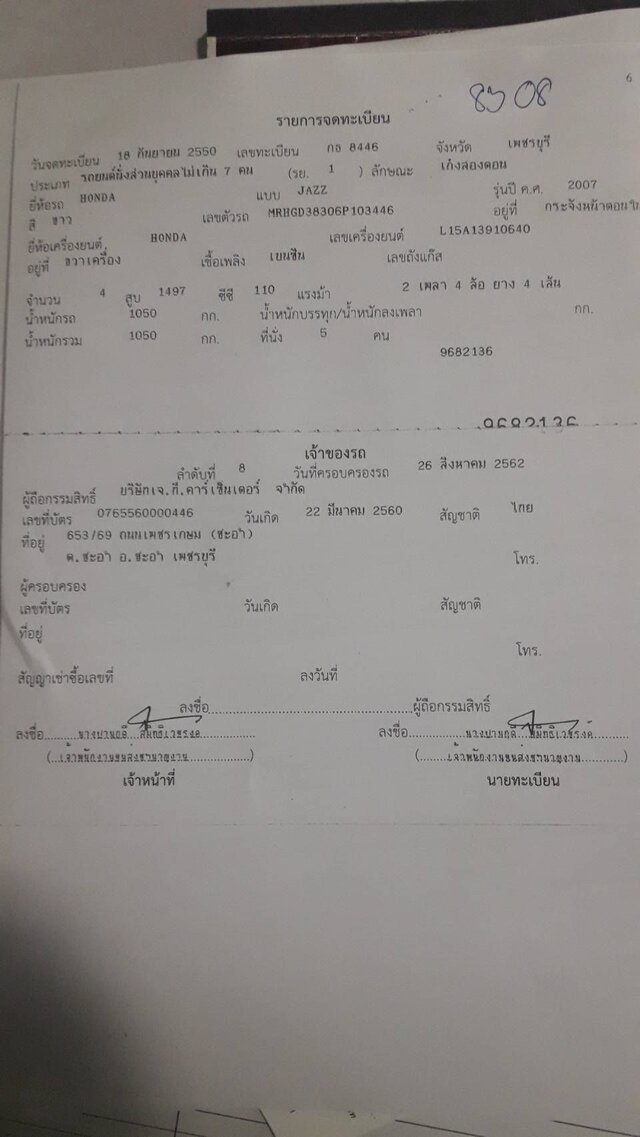 6
8508
รายการจดทะเบียน
วันจดทะเบียน 18 กันยายน 2550 เลขทะเบียน กอ 8446 จังหวัด เพชรบุรี
ประเภท รถยนต์นั่งส่วนบุคคลไม่เกิน 7 คน (รย. 1 ) ลักษณะ เก๋งสองตอน
ยี่ห้อรถ HONDA แบบ JAZZ รุ่นปี ค.ศ. 2007
สี ขาว เลขตัวรถ MRHGD38306P103446 อยู่ที่ กระจังหน้าตอนใน
ยี่ห้อเครื่องยนต์ HONDA เลขเครื่องยนต์ L15A13910640
อยู่ที่ ขวาเครื่อง เชื้อเพลิง เบนซิน เลขถังแก๊ส
จำนวน 4 สูบ 1497 ซีซี 110 แรงม้า 2 เพลา 4 ล้อ ยาง 4 เส้น
น้ำหนักรถ 1050 กก. น้ำหนักบรรทุก/น้ำหนักลงเพลา กก.
น้ำหนักรวม 1050 กก. ที่นั่ง 5 คน
9682136
9682136
เจ้าของรถ
ลำดับที่ 8 วันที่ครอบครองรถ 26 สิงหาคม 2562
ผู้ถือกรรมสิทธิ์ บริษัทเจ.ที.คาร์เซ็นเตอร์ จำกัด
เลขที่บัตร 0765560000446 วันเกิด 22 มีนาคม 2560 สัญชาติ ไทย
ที่อยู่ 653/69 ถนนเพชรเกษม (ชะอำ)
ต.ชะอำ อ.ชะอำ เพชรบุรี โทร.
ผู้ครอบครอง
เลขที่บัตร วันเกิด สัญชาติ
ที่อยู่
โทร.
สัญญาเช่าซื้อเลขที่ ลงวันที่
ลงชื่อ ผู้ถือกรรมสิทธิ์
ลงชื่อ ลงชื่อ
(เจ้าพนักงานขนส่งชำนาญงาน) (เจ้าพนักงานขนส่งชำนาญงาน)
เจ้าหน้าที่ นายทะเบียน